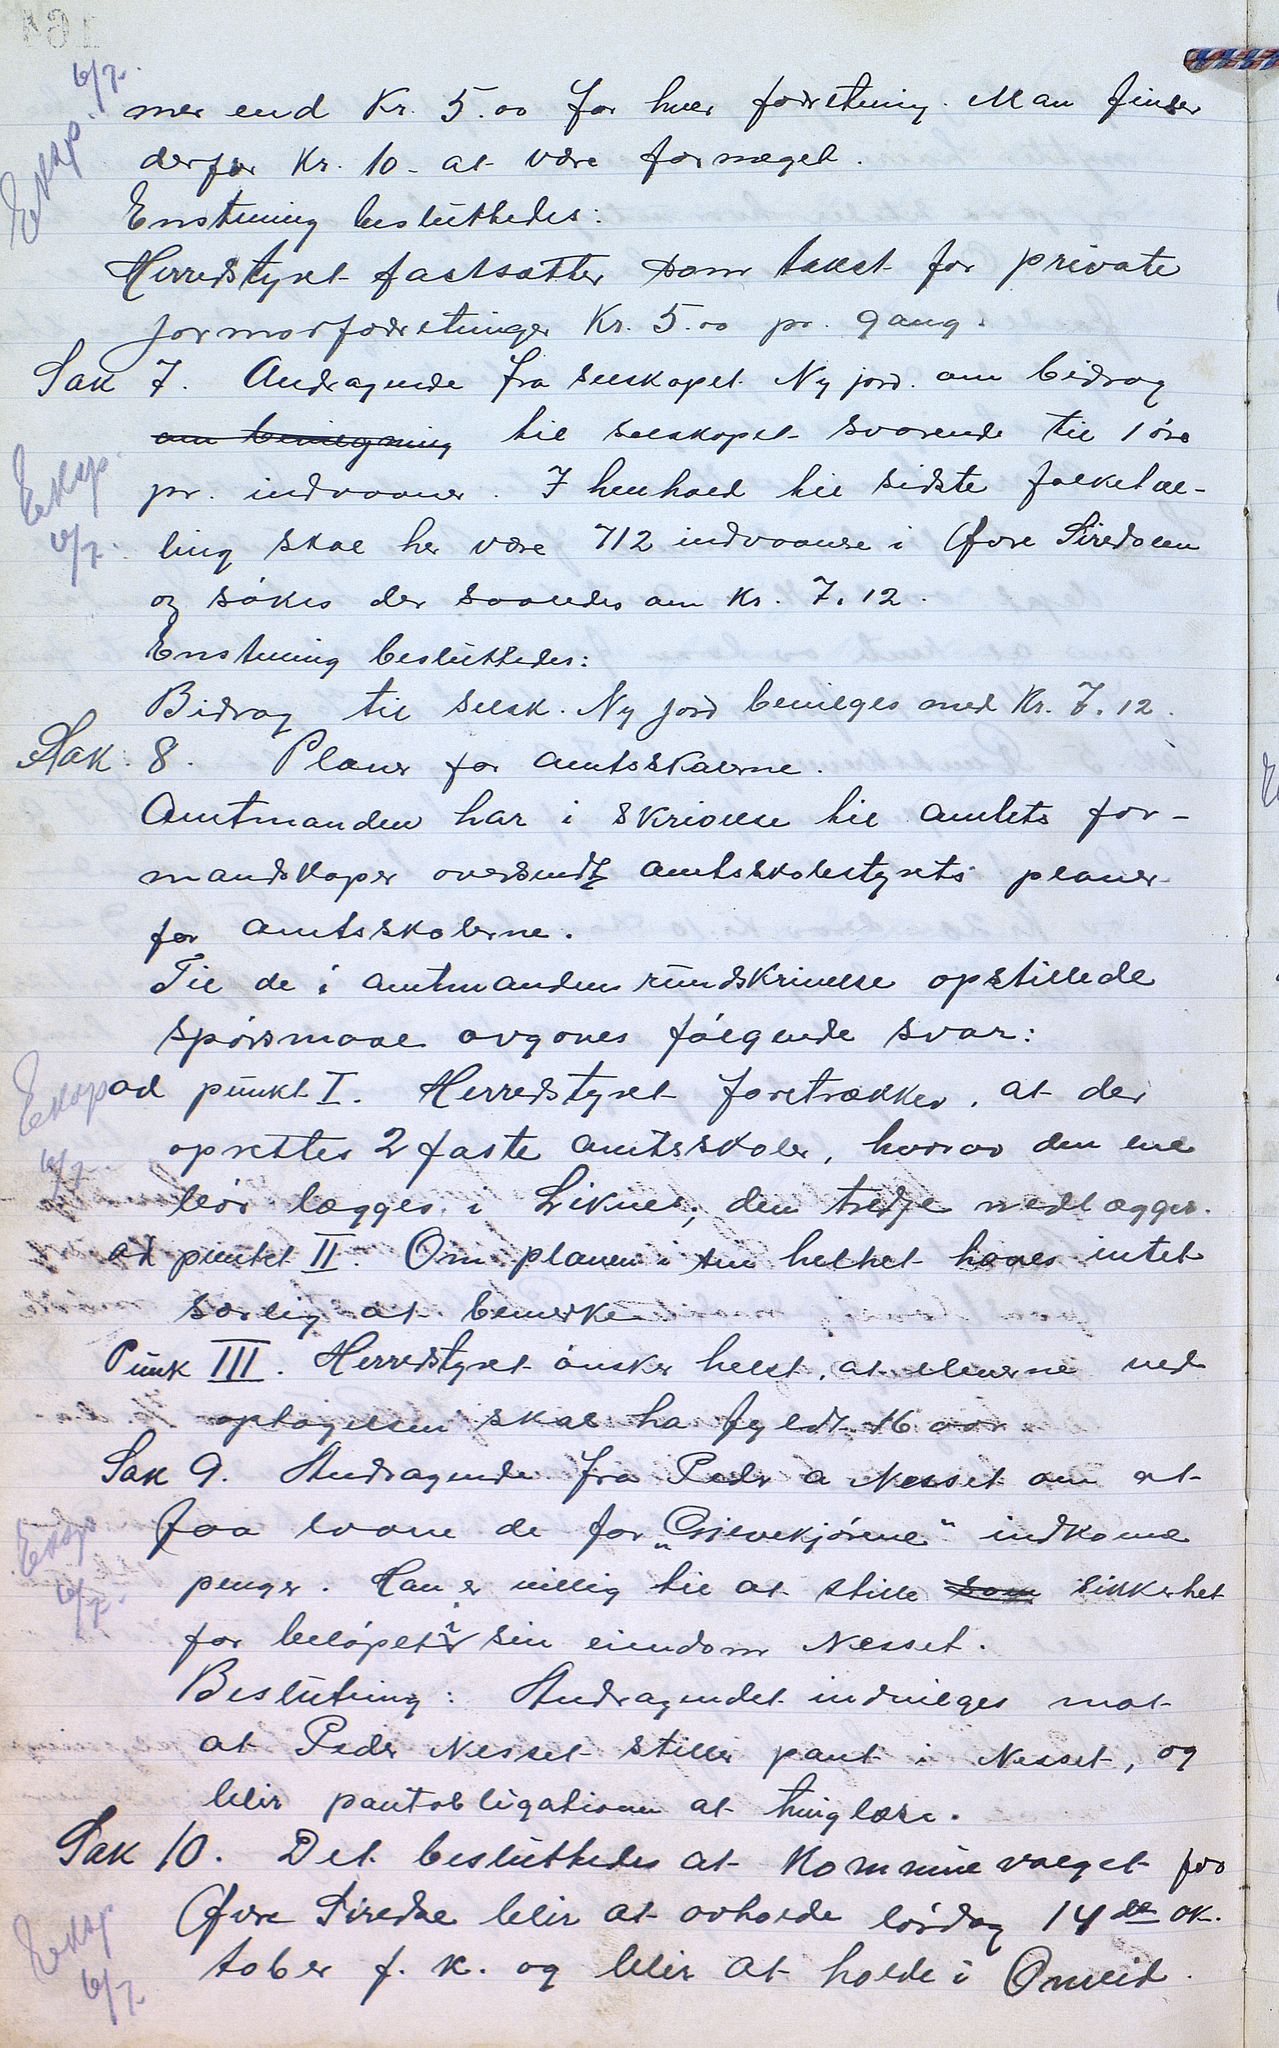 mer end Kr. 5.00 for hver forretning. Man finder
derfor Kr. 10.- at være for meget.
Enstemig besluttedes:
Herredstyret fastsætter som takst for private
jormorforretninger Kr. 5.00 pr. gang.
Eksp. 6/7.
Sak 7. Andragende fra selskapet Ny jord. om bidrag
om bevilgning til selskapet svarende til 1 øre
pr. indvaaner. I henhold til sidste folketæl-
ling skal her være 712 indvaanere i Øvre Siredalen
og søkes der saaledes om Kr. 7.12.
Enstemig besluttedes:
Bidrag til selsk. Ny jord bevilges med Kr. 7.12.
Eksp. 6/7.
Sak. 8. Planer for amtsskolerne.
Amtmanden har i skrivelse til amtets for-
mandskaper oversendt amtsskolestyrets planer
for amtsskolerne.
Til de i amtmandens rundskrivelse opstillede
spørsmaal avgives følgende svar:
ad punkt I. Herredstyret foretrækker, at der
oprettes 2 faste amtsskoler, hvorav den ene
bør lægges i Liknes; den tredje nedlægges.
ad punkt II. Om planen i sin helhet haves intet
særlig at bemerke
Punk III. Herredstyret ønsker helst, at elverne ved
optagelsen skal ha fyldt 16 aar.
Eksp 6/7.
Sak 9. Andragende fra Peder A Nesset om at
faa laane de for „ "  indkomne
penger. Han er villig til at stille som sikkerhet
for beløpet i sin eiendom Nesset.
Beslutning: Andragendet indvilges mot
at Peder Nesset stiller pant i Nesset, og
blir pantobligationen at tinglæse.
Eksp 6/7.
Sak 10. Det besluttedes at Kommunevalget for
Øvre Siredal blir at avholde lørdag 14de ok-
tober f. k. og blir at holde i Omeid.
Eksp 6/7